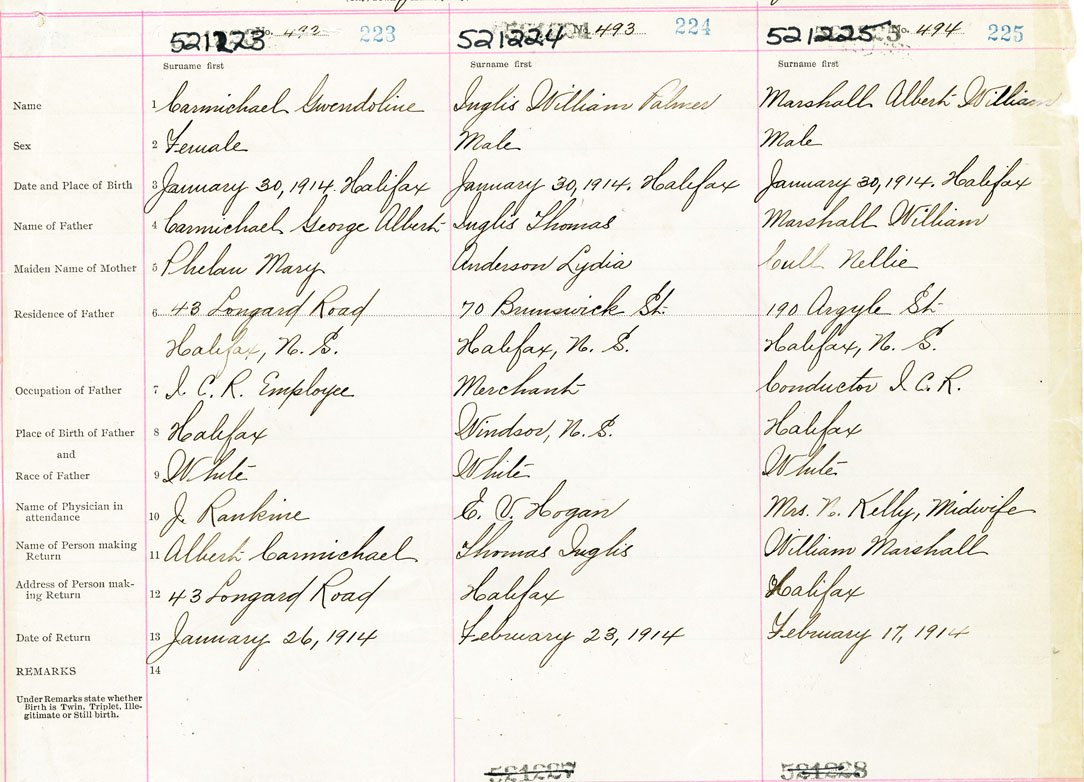 521223 No. 492 223
521224 No 493 224
521225 No. 494 225
Surname first
Surname first
Surname first
Name 1 Carmichael Gwendoline
Inglis William Palmer
Marshall Albert William
Sex 2 Female
Male
Male
Date and Place of Birth 3 January 30, 1914. Halifax
January 30, 1914. Halifax
January 30, 1914. Halifax
Name of Father 4 Carmichael George Albert
Inglis Thomas
Marshall William
Maiden Name of Mother 5 Phelan Mary
Anderson Lydia
Cull Nellie
Residence of Father 6 43 Longard Road
70 Brunswick St.
190 Argyle St.
Halifax, N. S.
Halifax, N. S.
Halifax, N. S.
Occupation of Father 7 I. C. R. Employee
Merchant
Conductor I. C. R.
Place of Birth of Father 8 Halifax
Windsor, N. S.
Halifax
and
Race of Father 9 White
White
White
Name of Physician in
attendance 10 J. Rankine
E. V. Hogan
Mrs. N. Kelly, Midwife
Name of Person making
Return 11 Albert Carmichael
Thomas Inglis
William Marshall
Address of Person mak-
ing Return 12 43 Longard Road
Halifax
Halifax
Date of Return 13 January 26, 1914
February 23, 1914
February 17, 1914
REMARKS 14
Under Remarks state whether
Birth is Twin, Triplet, Ille-
gitimate or Still birth.
521227
521228